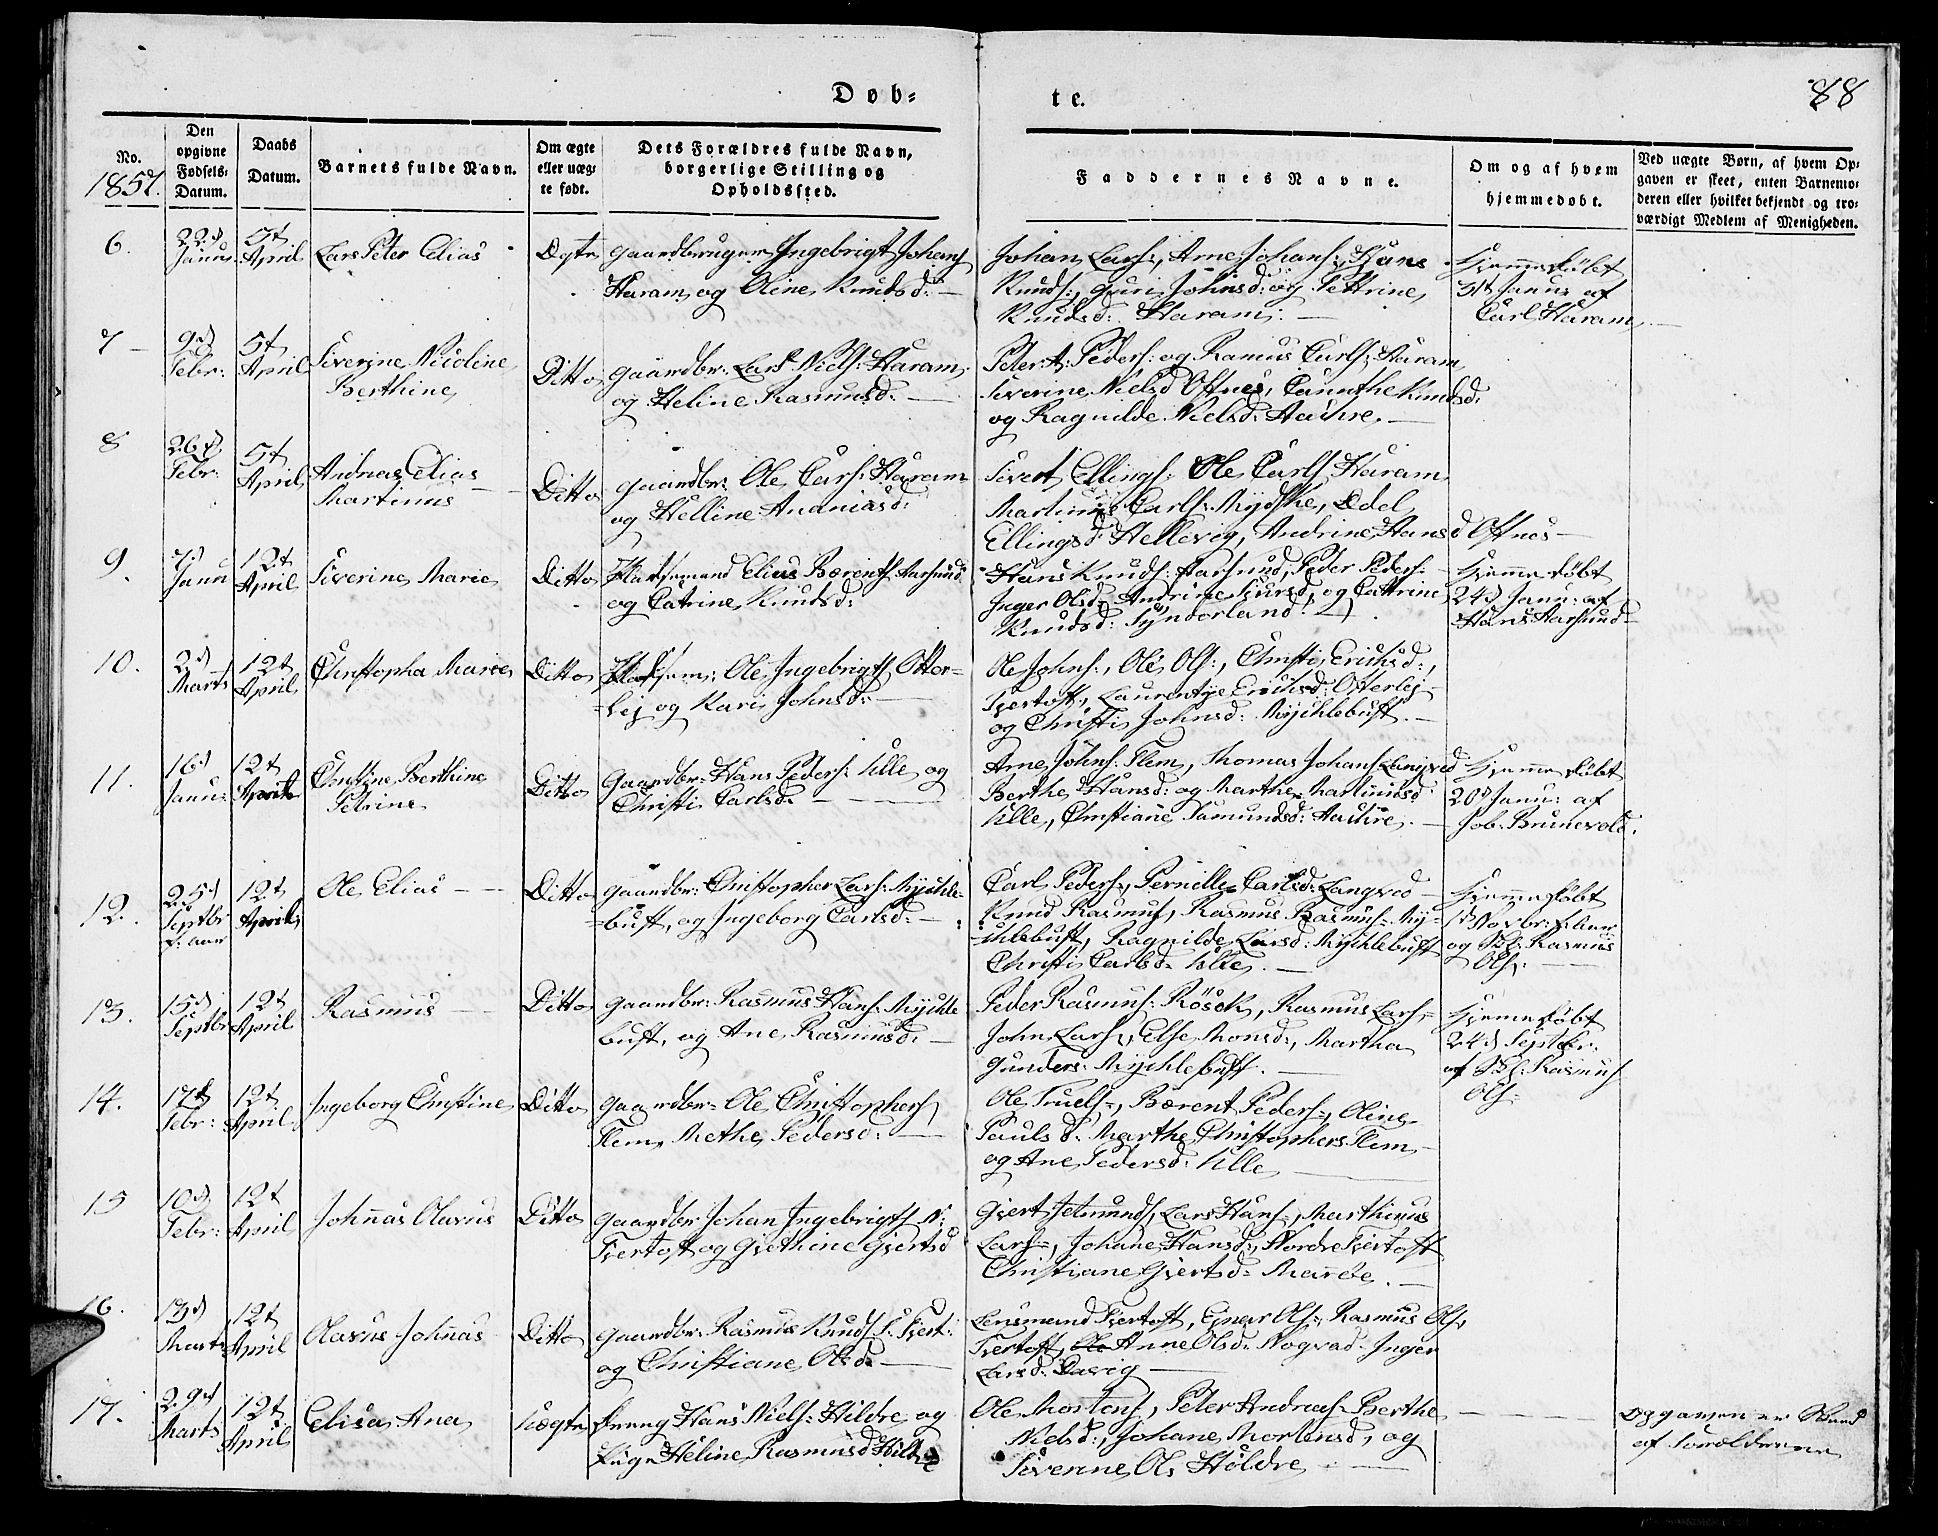 Døb=
te.
88
No.
1857.
Den
opgivne
Fødsels=
Datum.
Daabs
Datum.
Barnets fulde Navn.
Om ægte
eller uæg=
te født.
Dets Forældres fulde Navn,
borgerlige Stilling og
Opholdssted.
Faddernes Navne.
Om og af hvem
hjemmedøbt.
Ved uægte Børn, af hvem Op=
gaven er skeet, enten Barnemo=
deren eller hvilket bekjendt og tro=
værdigt Medlem af Menigheden.
6.
22d
Janu:
5t
April
Lars Peter Elias
Ægte
Gaardbruger Ingebrigt Johans
Haram og Oline Knudsd: —
Johan Lars:, Arne Johans:, Hans
Knuds:, Guri Johnsd: og Pettrine
Knudsd: Haram: —
Hjemmedøbt
31t Janu: af
Carl Haram
7 —
9d
Febr:
5t
April
Siverine Nicoline
Berthine
Ditto
Gaardbr: Lars Niels: Haram
og Heline Rasmusd: —
Peter A: Peders: og Ramus Carls: Haram
Siverine Nielsd Ostnes, Knudsd:
og Ragnilde Nielsd: Aackre. —
8
26d
Febr:
5t
April
Andreas Elias
Martinus
Ditto
Gaardbr: Ole Carls: Haram
og Helline Ananiasd:
Sivert Ellings: Ole Carls: Haram
Martinus Carls: Mydske, Edel
Ellingsd: Hellevig, Andrine Hansd Ostnes —
9.
7d
Janu
12t
April
Siverine Marie
Ditto
Huusmand Elias Bærents: Aarsund
og Catrine Knudsd:
Hans Knuds: Aarsund, Peder Peders: —
Inger Olsd: Andrine og Cattrine
Knudsd: Synderland. —
Hjemmedøbt
24d Janu: af
Hans Aarsund
10.
2d
Marts
12t
April
Christopha Marie
Ditto
Huusm: Ole Ingebrigts: Otter=
=lej og Kari Johnsd: —
Ole Johns:, Ole Ols:, Christi Ericksd:,
Fjertoft, Laurentze Ericksd: Otterlej
og Christi Johnsd: Mychlebust. —
11.
16d
Janu:
12t
April
Christine Berthine
Petrine
Ditto
Gaardbr: Hans Peders: Ulle og
Christi Carlsd: —
Arne Johns: Flem, Thomas Johans: Langved
Berthe Hansd: og Marthe Martinusd:
Ulle, Christiane Samundsd: Aackre. —
Hjemmedøbt
20d Janu: af
Job: Brunevold.
12.
25d
Septbr
f: Aar
12t
April
Ole Elias —
Ditto
Gaardbr: Christopher Lars: Myckle=
=bust, og Ingeborg Carlsd: —
Carl Peders:, Pernille Carlsd: Langved
Knud Rasmus:, Rasmus Rasmus: My=
=chlebust, Ragnilde Larsd: Mychlebust
Christi Carlsd: Ulle. —
Hjemmedøbt
1d Novbr: f: Aar
og Skl: Rasmus
Ols: —
13.
15d
Septbr
12t
April
Rasmus —
Ditto
Gaardbr: Rasmus Hans: Myckle
bust, og Ane Rasmusd: —
Peder Rasmus: Røsok, Rasmus Lars:
John Lars:, Else Monsd:, Martha
Gunders: Mychlebust. —
Hjemedøbt
24d Septbr:
af Skl: Rasmus
Ols:
14.
17d
Febr:
12t
April
Ingeborg Christine
Ditto
Gaardbr: Ole Christophers:
Flem, Methe Pedersd: —
Ole Truels:, Bærent Peders:, Oline
Paulsd: Marthe Christophers Flem
og Ane Pedersd: Ulle —
15
10d
Febr:
12t
April
Johnas Olavus
Ditto
Gaardbr: Johan Ingebrigts: N:
Fjertoft og Grethine Gjertsd
Gjert Jetmunds:, Lars Hans:, Marthinus
Lars:, Johane Hansd:, Nordre Fjertoft
Christiane Gjertsd: Marøe. —
16.
13d
Marts
12t
April
Olavus Johnas
Ditto
Gaardbr: Rasmus Knuds: S: Fjert:
og Christiane Olsd: —
Lensmand Fjertoft, Ejnar Ols: Rasmus Ols:
Fjertoft, Anne Olsd: Nogvad. Inger
Larsd: Davig —
17.
29d
Marts
12t
April
Elisa Ana
Uægte
Dreng Hans Niels: Hildre og
Pige Heline Rasmusd Hildre
Ole Mortens:, Peter Andreas: Berthe
Nielsd:, Johane Mortensd:, og
Siverine Ols Hildre —
Opgaven er skeed
af Forældrene